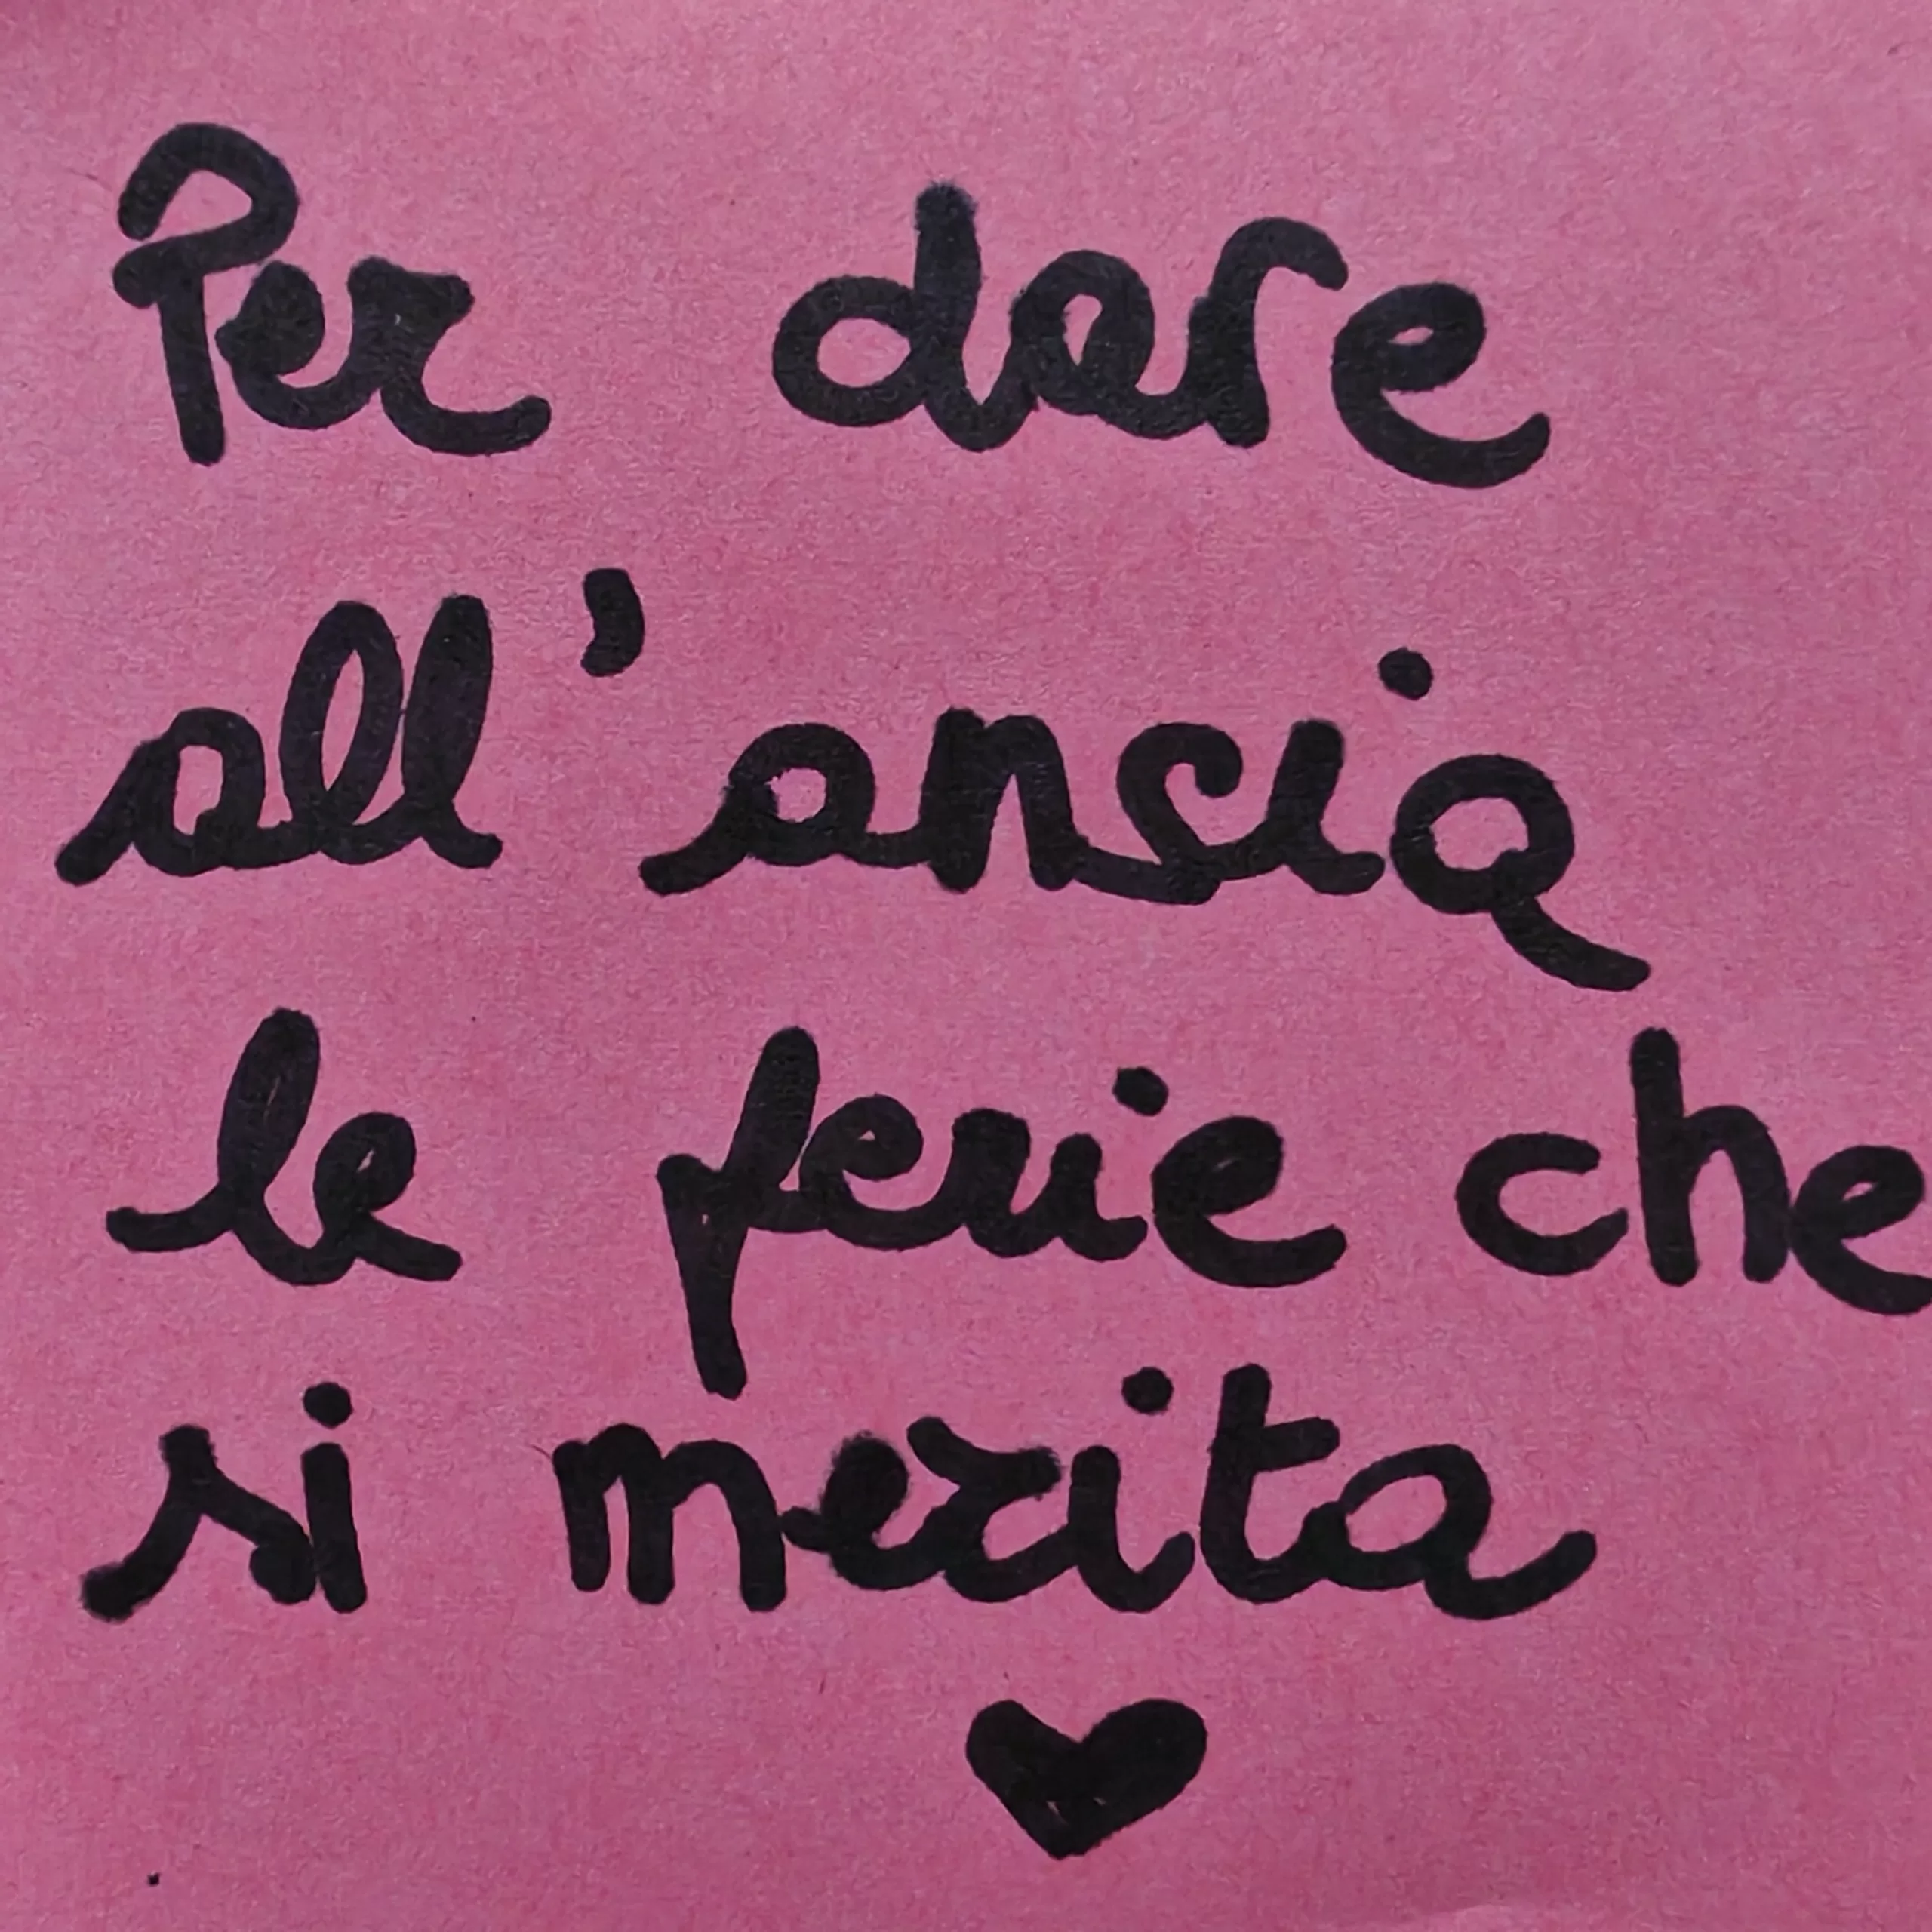 Per dare
all'ansia
le ferie che
si merita